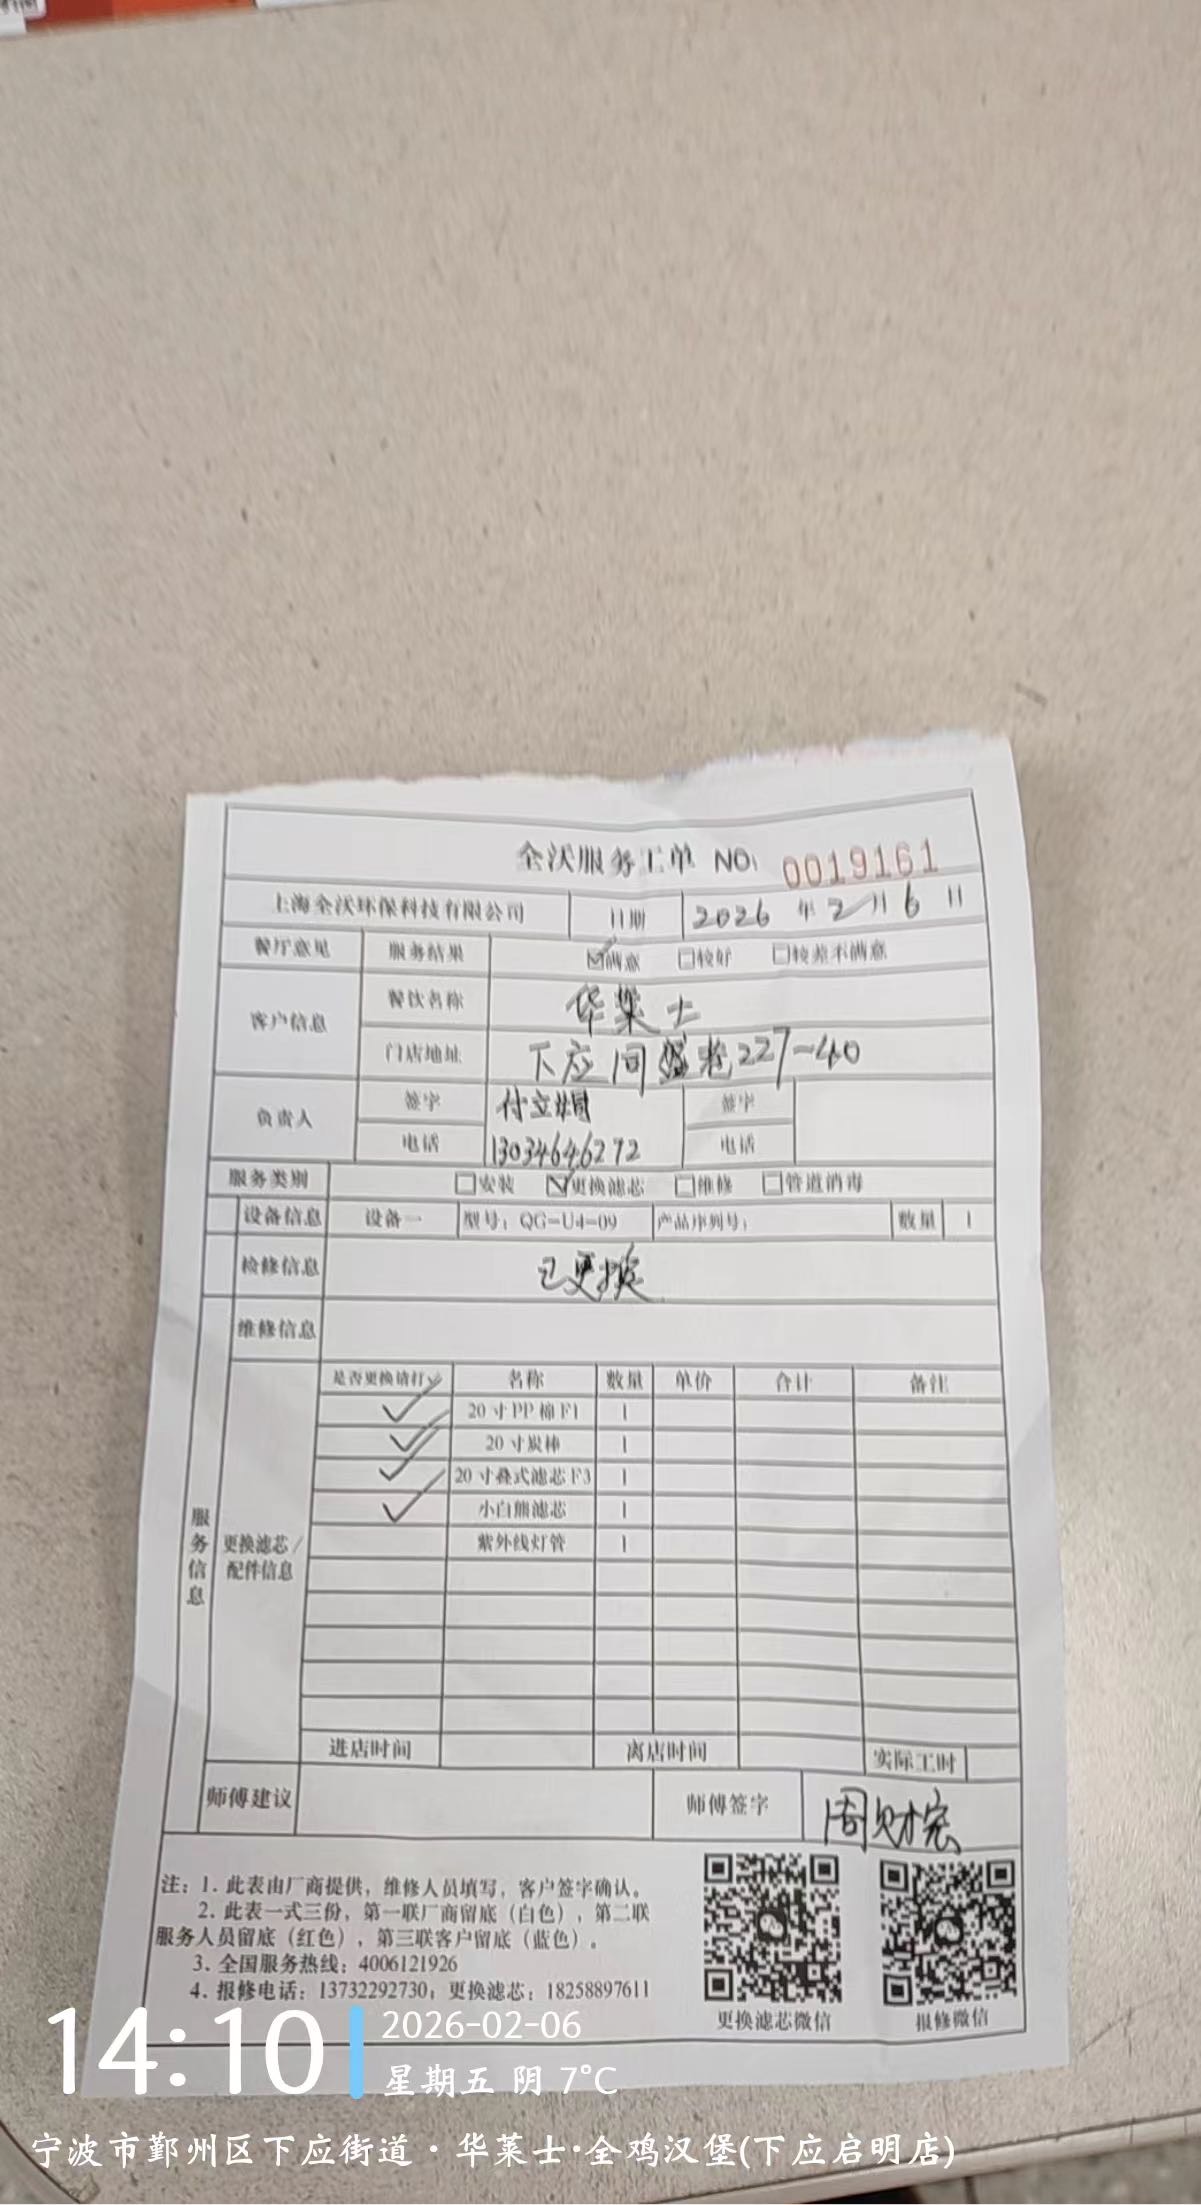 全沃服务工单 NO: 0019161
上海全沃环保科技有限公司 日期 2026 年 2 月 6 日
餐厅意见 服务结果 ☑满意 □较好 □较差不满意
客户信息 餐饮名称 华莱士
门店地址 下应 227-40
负责人 签字 付立娟 签字
电话 13034646272 电话
服务类别 □安装 ☑更换滤芯 □维修 □管道消毒
设备信息 设备一 型号: QG-U4-09 产品序列号: 数量 1
检修信息 已更换
维修信息
服务信息
更换滤芯/配件信息
是否更换请打✓ 名称 数量 单价 合计 备注
✓ 20寸PP棉F1 1
✓ 20寸炭棒 1
✓ 20寸叠式滤芯F3 1
✓ 小白熊滤芯 1
紫外线灯管 1
进店时间 离店时间 实际工时
师傅建议 师傅签字 周财宏
注: 1. 此表由厂商提供, 维修人员填写, 客户签字确认。
2. 此表一式三份, 第一联厂商留底(白色), 第二联
服务人员留底(红色), 第三联客户留底(蓝色)。
3. 全国服务热线: 4006121926
4. 报修电话: 13732292730; 更换滤芯: 18258897611
更换滤芯微信 报修微信
14:10 2026-02-06
星期五 阴 7°C
宁波市鄞州区下应街道·华莱士·全鸡汉堡(下应启明店)